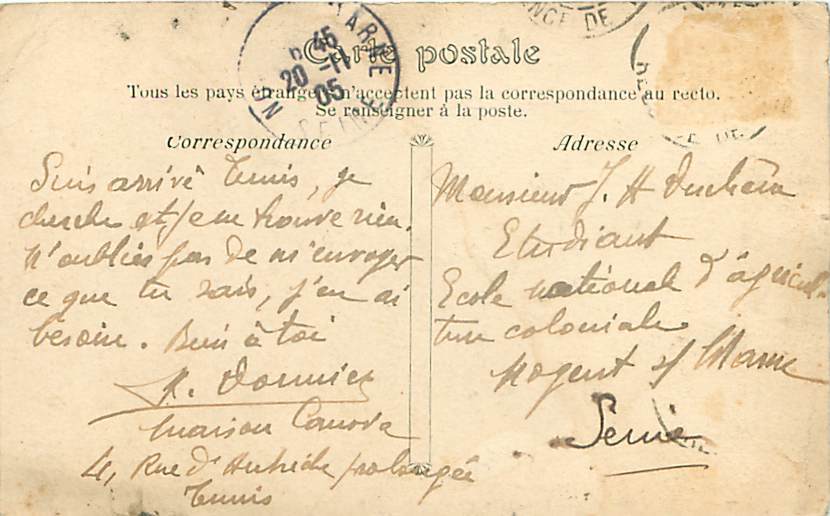 Carte postale
Tous les pays étrangers n'acceptent pas la correspondance au recto.
Se renseigner à la poste.
Correspondance
Suis arrivé Tunis, je
cherche et je ne trouve rien.
N'oublies pas de m'envoyer
ce que tu sais, j'en ai
besoin. Bien à toi
Maison Canova
4, Rue d'Autriche prolongée
Tunis
Adresse
Monsieur J. H Duchêne
Etudiant
Ecole nationale d'agricul-
ture coloniale
Nogent s/ Marne
Seine
MARNE
45
20 -11
05
NCE DE